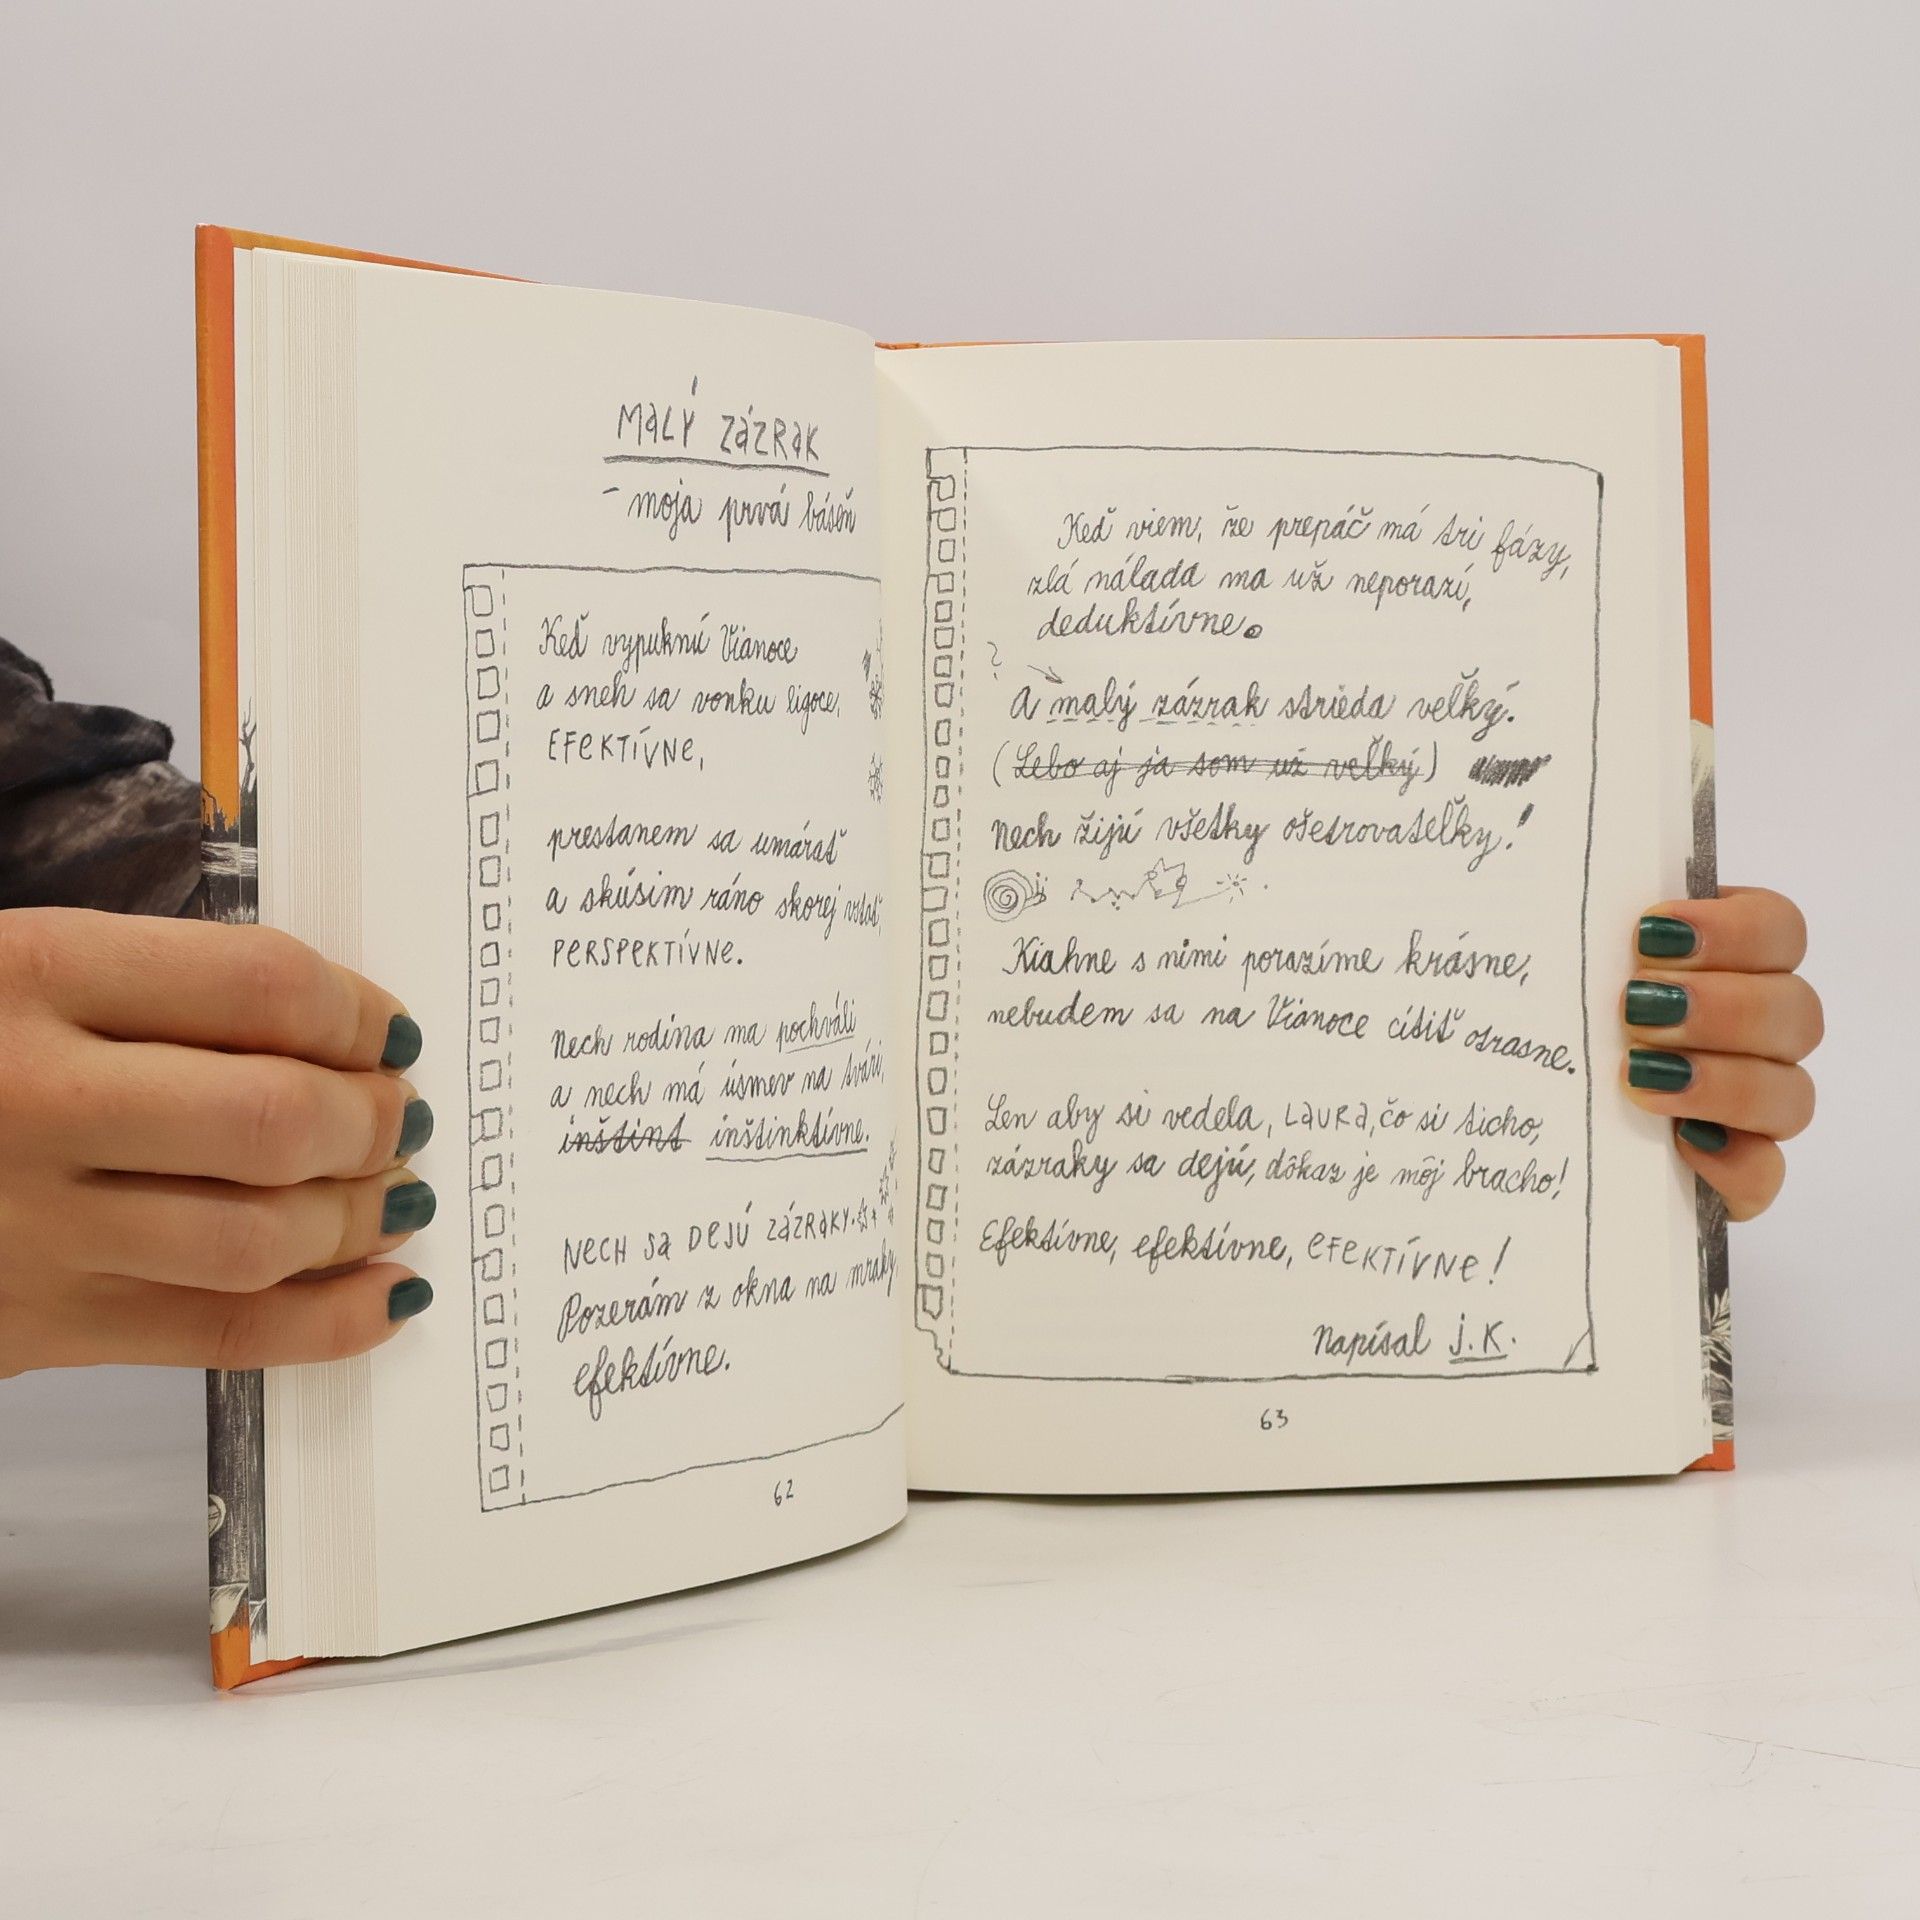 MALÝ ZÁZRAK
- moja prvá báseň
Keď vypuknú Vianoce
a sneh sa vonku ligoce,
EFEKTÍVNE,
prestanem sa umárať
a skúsim ráno skorej vstať,
PERSPEKTÍVNE.
Nech rodina ma pochváli
a nech má úsmev na tvári,
inštint inštinktívne.
NECH SA DEJÚ ZÁZRAKY.
Pozerám z okna na mraky,
efektívne.
62
Keď viem, že prepáč má tri fázy,
zlá nálada ma už neporazí,
deduktívne.
?
A malý zázrak strieda veľký.
(Lebo aj ja som už veľký)
Nech žijú všetky ošetrovateľky!
Kiahne s nimi porazíme krásne,
nebudem sa na Vianoce cítiť otrasne.
Len aby si vedela, LAURA, čo si ticho,
zázraky sa dejú, dôkaz je môj bracho!
Efektívne, efektívne, EFEKTÍVNE!
Napísal J.K.
63